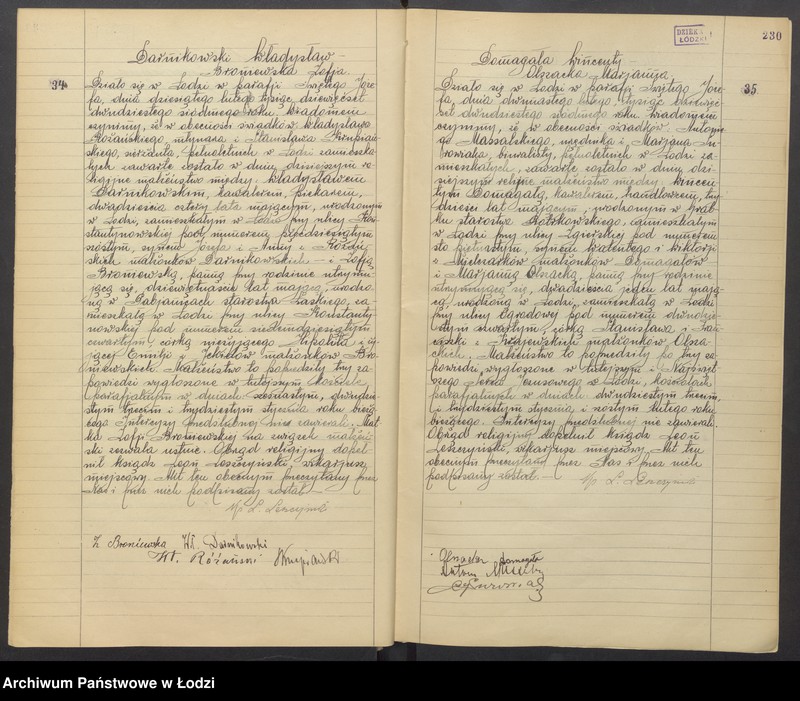 34.
Darnikowski Władysław –
Broniewska Zofja.
Działo się w Łodzi w parafji Świętego Józe-
fa, dnia dziesiątego lutego tysiąc dziewięćset
dwudziestego siódmego roku. Wiadomem
czynimy, że w obecności świadków Władysława
Różańskiego, młynarza i Stanisława
skiego, pełnoletnich w Łodzi zamieszka-
łych zawarte zostało w dniu dzisiejszym re-
ligijne małżeństwo między Władysławem
Darnikowskim, kawalerem, piekarzem,
dwadzieścia cztery lata mającym, urodzonym
w Łodzi, zamieszkałym w Łodzi przy ulicy Kon-
stantynowskiej pod numerem pięćdziesiątym
szóstym, synem Józefa i Anny z
małżonków Darnikowskich – i Zofją
Broniewską, panną przy rodzinie utrzymu-
jącą się, dziewiętnaście lat mającą, urodzo-
ną w Pabjanicach starostwa Łaskiego, za-
mieszkałą w Łodzi przy ulicy Konstanty-
nowskiej pod numerem siedemdziesiątym
czwartym, córką nieżyjącego Hipolita i ży-
jącej Emilji z małżonków Bro-
niewskich. Małżeństwo to poprzedziły trzy za-
powiedzi wygłoszone w tutejszym kościele
parafjalnym w dniach szesnastym, dwudzie-
stym trzecim i trzydziestym stycznia roku bieżą-
cego. Intercyzy przedślubnej nie zawierali. Mat-
ka Zofji Broniewskiej na związek małżeń-
ski zezwala ustnie. Obrząd religijny dopeł-
nił ksiądz Leon Leszczyński, wikarjusz
miejscowy. Akt ten obecnym przeczytany przez
Nas i przez nich podpisany został –
L. Leszczyński
Z. Broniewska Wł. Darnikowski
Wł. Różański
DZIEKAN ŁÓDZKI
230
35.
Domagała Wincenty –
Olszacka Marjanna
Działo się w Łodzi w parafji Świętego Józe-
fa, dnia dwunastego lutego tysiąc dziewięć-
set dwudziestego siódmego roku. Wiadomem
czynimy, że w obecności świadków Antonie-
go Massalskiego, urzędnika i Marjana
biuralisty, pełnoletnich w Łodzi za-
mieszkałych, zawarte zostało w dniu dzi-
siejszym religijne małżeństwo między Wincen-
tym Domagałą, kawalerem, handlowcem, trzy-
dzieści lat mającym, urodzonym w
starostwa Piotrkowskiego, zamieszkałym
w Łodzi przy ulicy Zgierskiej pod numerem
sto synem Walentego i Wiktorji
z małżonków Domagałów
i Marjanną Olszacką, panną przy rodzinie
utrzymującą się, dwadzieścia jeden lat mają-
cą, urodzoną w Łodzi, zamieszkałą w Łodzi
przy ulicy Ogrodowej pod numerem dwudzie-
stym czwartym, córką Stanisława i Fran-
ciszki z Krajewskich małżonków Olsza-
ckich. Małżeństwo to poprzedziły trzy za-
powiedzi, wygłoszone w tutejszym i Najświęt-
szego Serca Jezusowego w Łodzi, kościołach
parafjalnych w dniach: dwudziestym trzecim
i trzydziestym stycznia i szóstym lutego roku
bieżącego. Intercyzy przedślubnej nie zawierali.
Obrząd religijny dopełnił ksiądz Leon
Leszczyński, wikarjusz miejscowy. Akt ten
obecnym przeczytany przez Nas i przez nich
podpisany został. – L. Leszczyński
Domagała
Antoni
Archiwum Państwowe w Łodzi